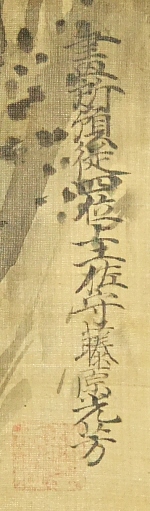 畫所預從四位下土佐守藤原光芳